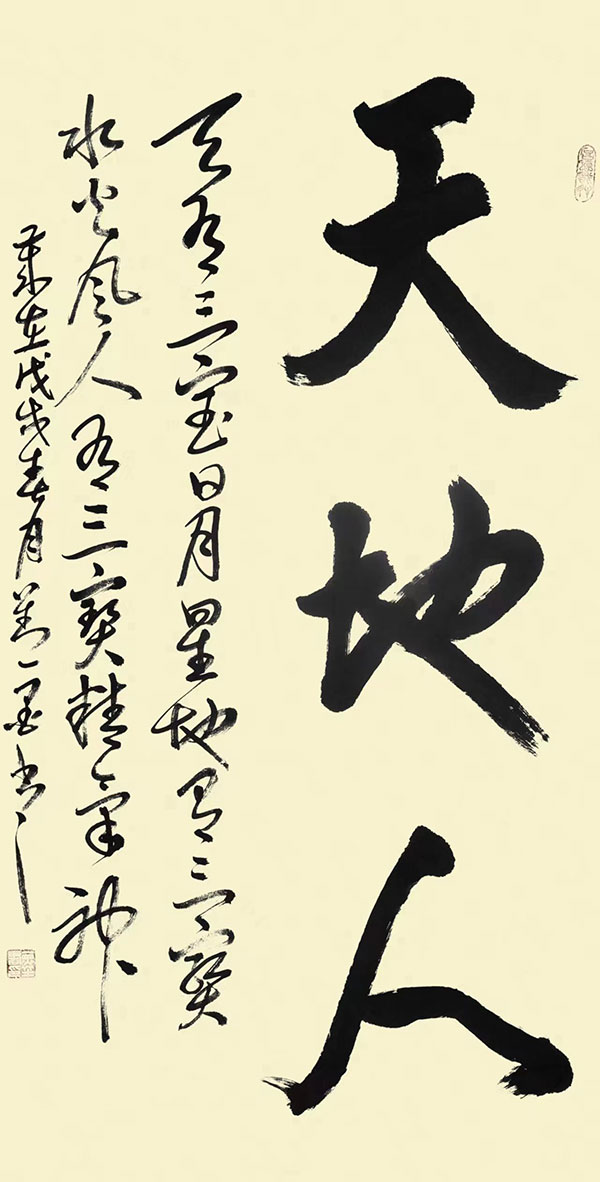 天地人
天有三宝日月星地有三寶
水火风人有三寶精气神
岁在戊戌春月万一墨书